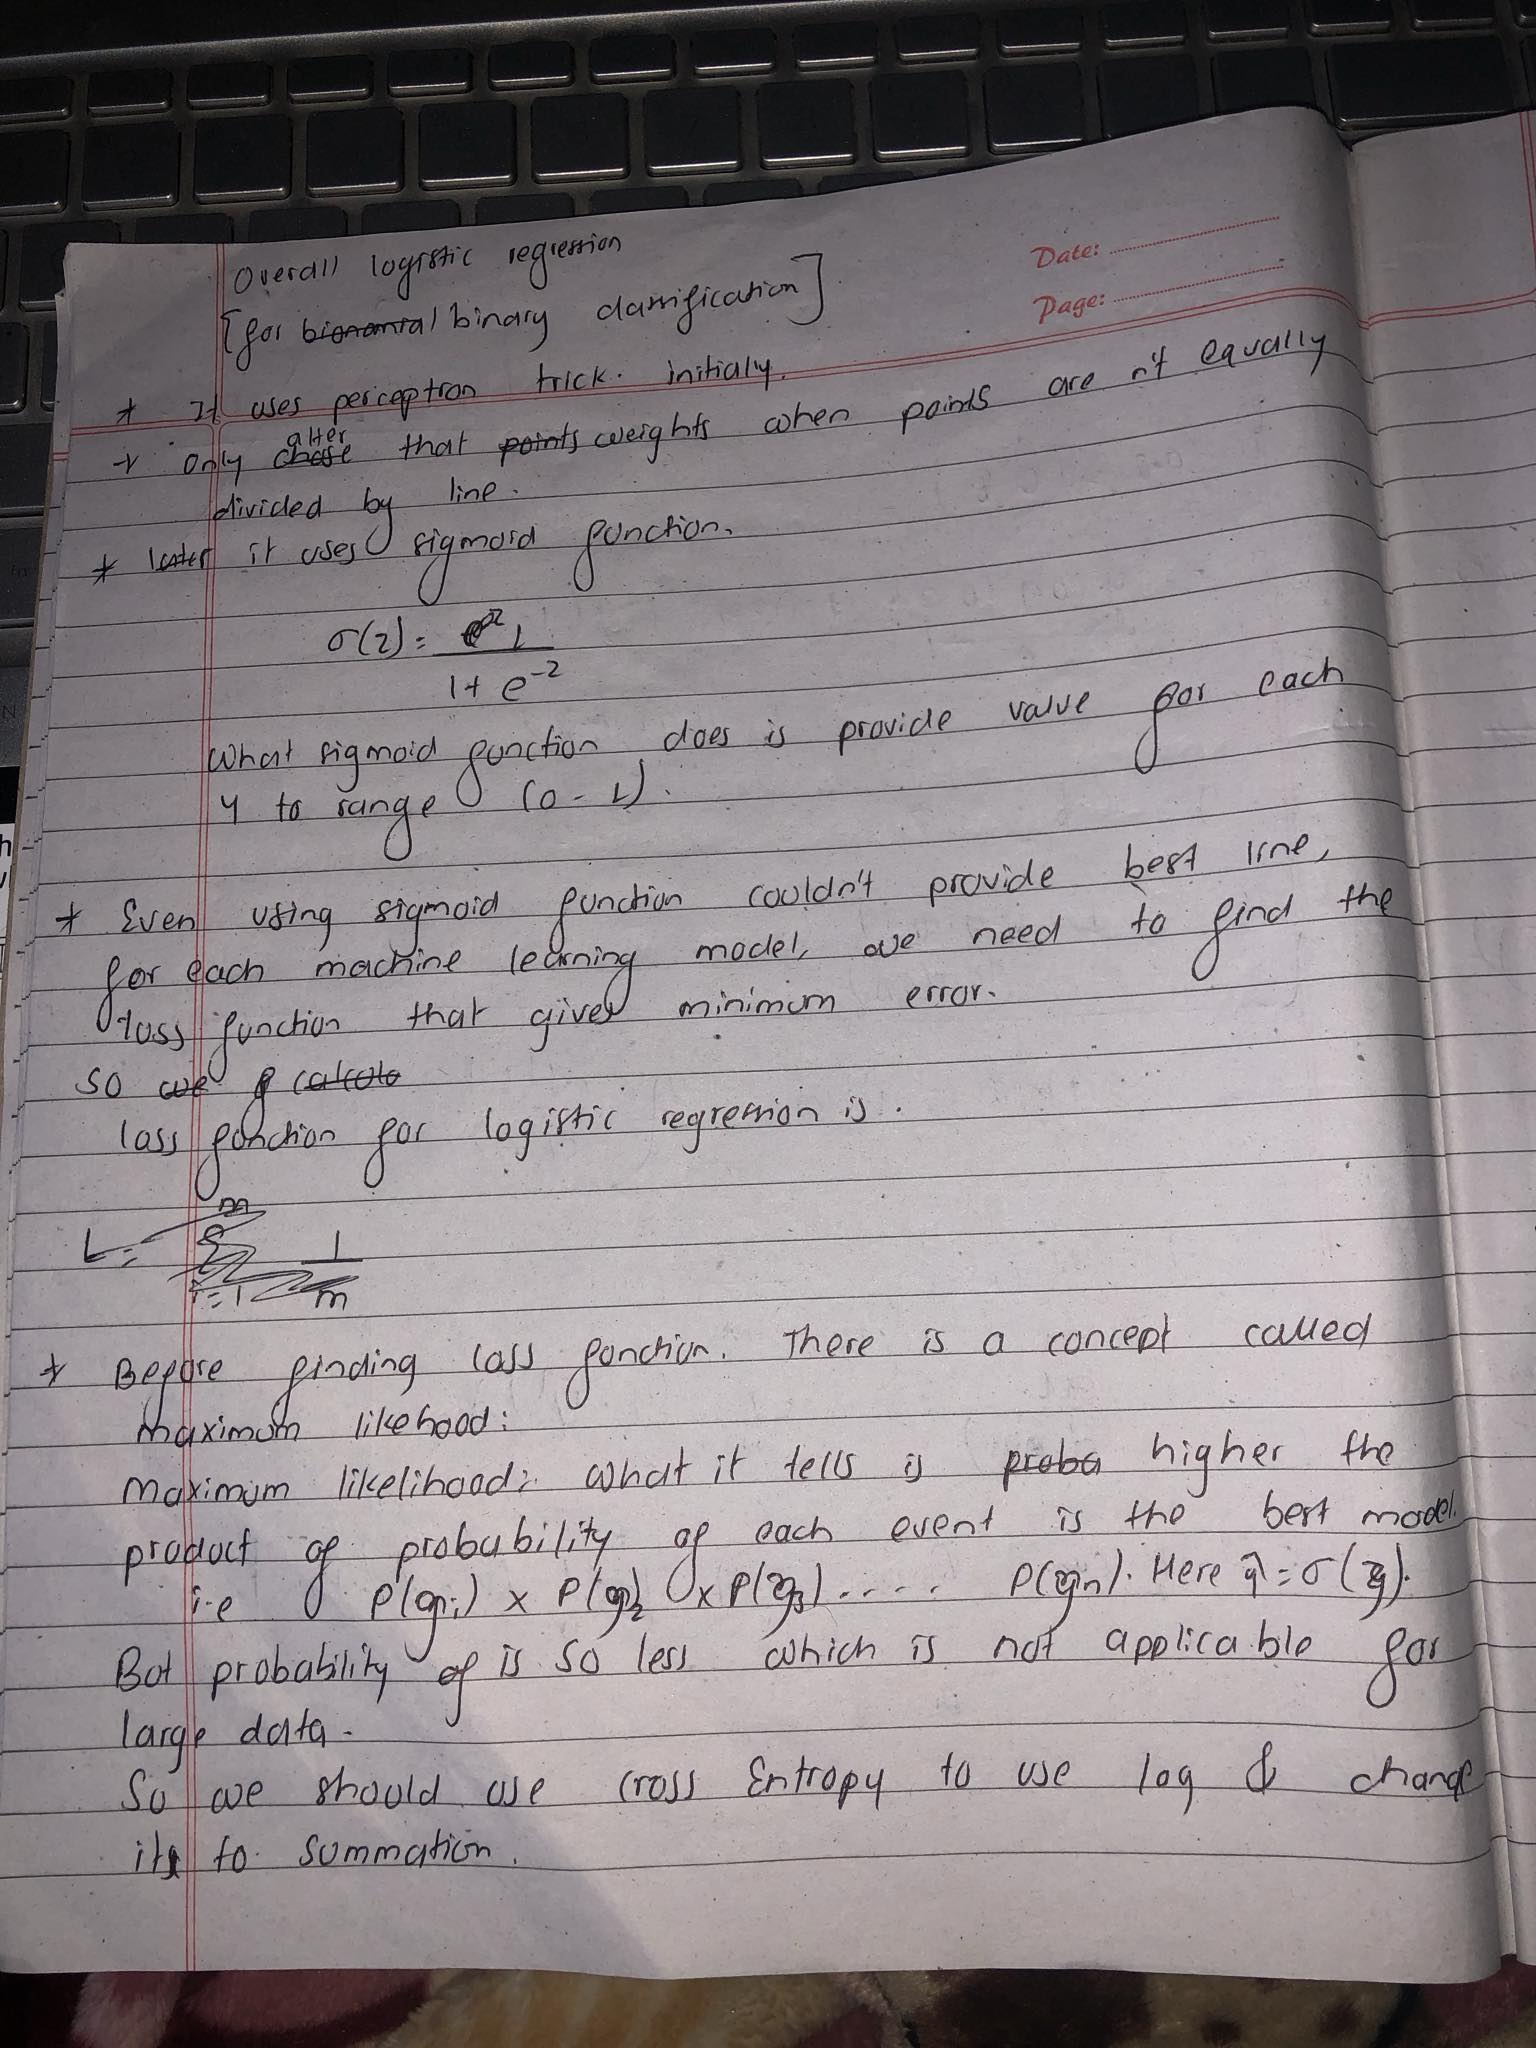 Overall logistic regression
Date:
[for bionomial binary classification]
Page:
* It uses perceptron trick. initialy.
* only chose alter that points weights when points are n't equally
divided by line.
* later it uses sigmoid function.
σ(z) = 1
1 + e^-z
What sigmoid function does is provide value for each
y to range (0 - 1).
* Even using sigmoid function couldn't provide best line,
for each machine learning model, we need to find the
loss function that gives minimum error.
so we calcula
loss function for logistic regression is.
L = m
Σ 1
i=1 m
* Before finding loss function. There is a concept called
maximum likehood:
Maximum likelihood: What it tells is proba higher the
product of probability of each event is the best model.
i.e P(y1) x P(y2) x P(y3) ..... P(yn). Here ŷ = σ(z).
But probability of is so less which is not applicable for
large data.
So we should use Cross Entropy to use log & change
its to summation.